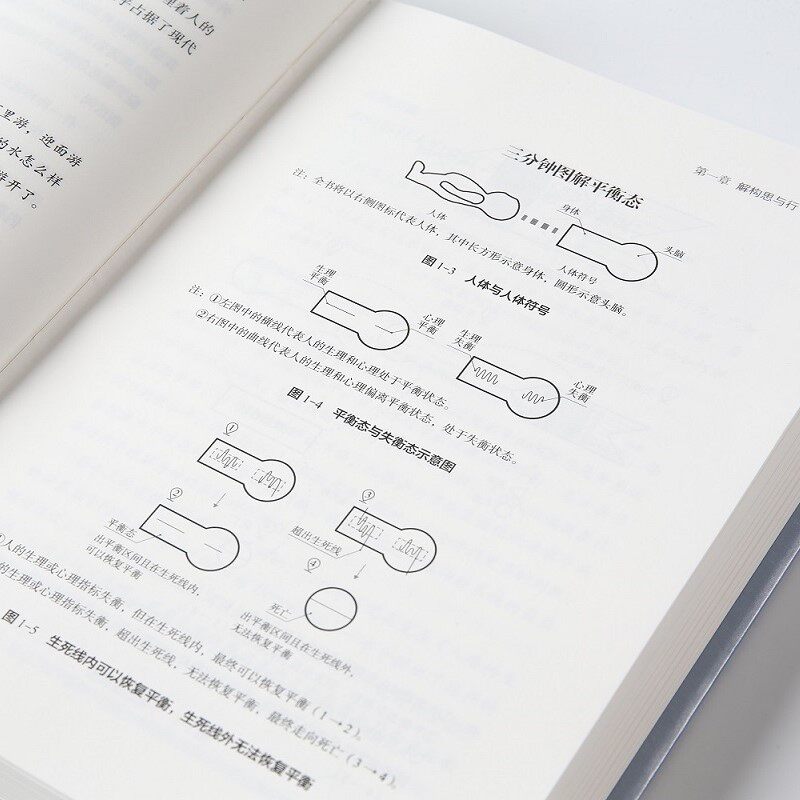 里着人的
乎占据了现代
里游，迎面游
的水怎么样
游开了。
第一章 解构思与行
三分钟图解平衡态
人体
身体
头脑
人体符号
注：全书将以右侧图标代表人体，其中长方形示意身体，圆形示意头脑。
图 1-3 人体与人体符号
生理
平衡
心理
平衡
生理
失衡
心理
失衡
注：①左图中的横线代表人的生理和心理处于平衡状态。
②右图中的曲线代表人的生理和心理偏离平衡状态，处于失衡状态。
图 1-4 平衡态与失衡态示意图
①
②
平衡态
出平衡区间且在生死线内，
可以恢复平衡
③
超出生死线
④
死亡
出平衡区间且在生死线外，
无法恢复平衡
①人的生理或心理指标失衡，但在生死线内，最终可以恢复平衡（1→2）。
的生理或心理指标失衡，超出生死线，无法恢复平衡，最终走向死亡（3→4）。
图 1-5 生死线内可以恢复平衡，生死线外无法恢复平衡